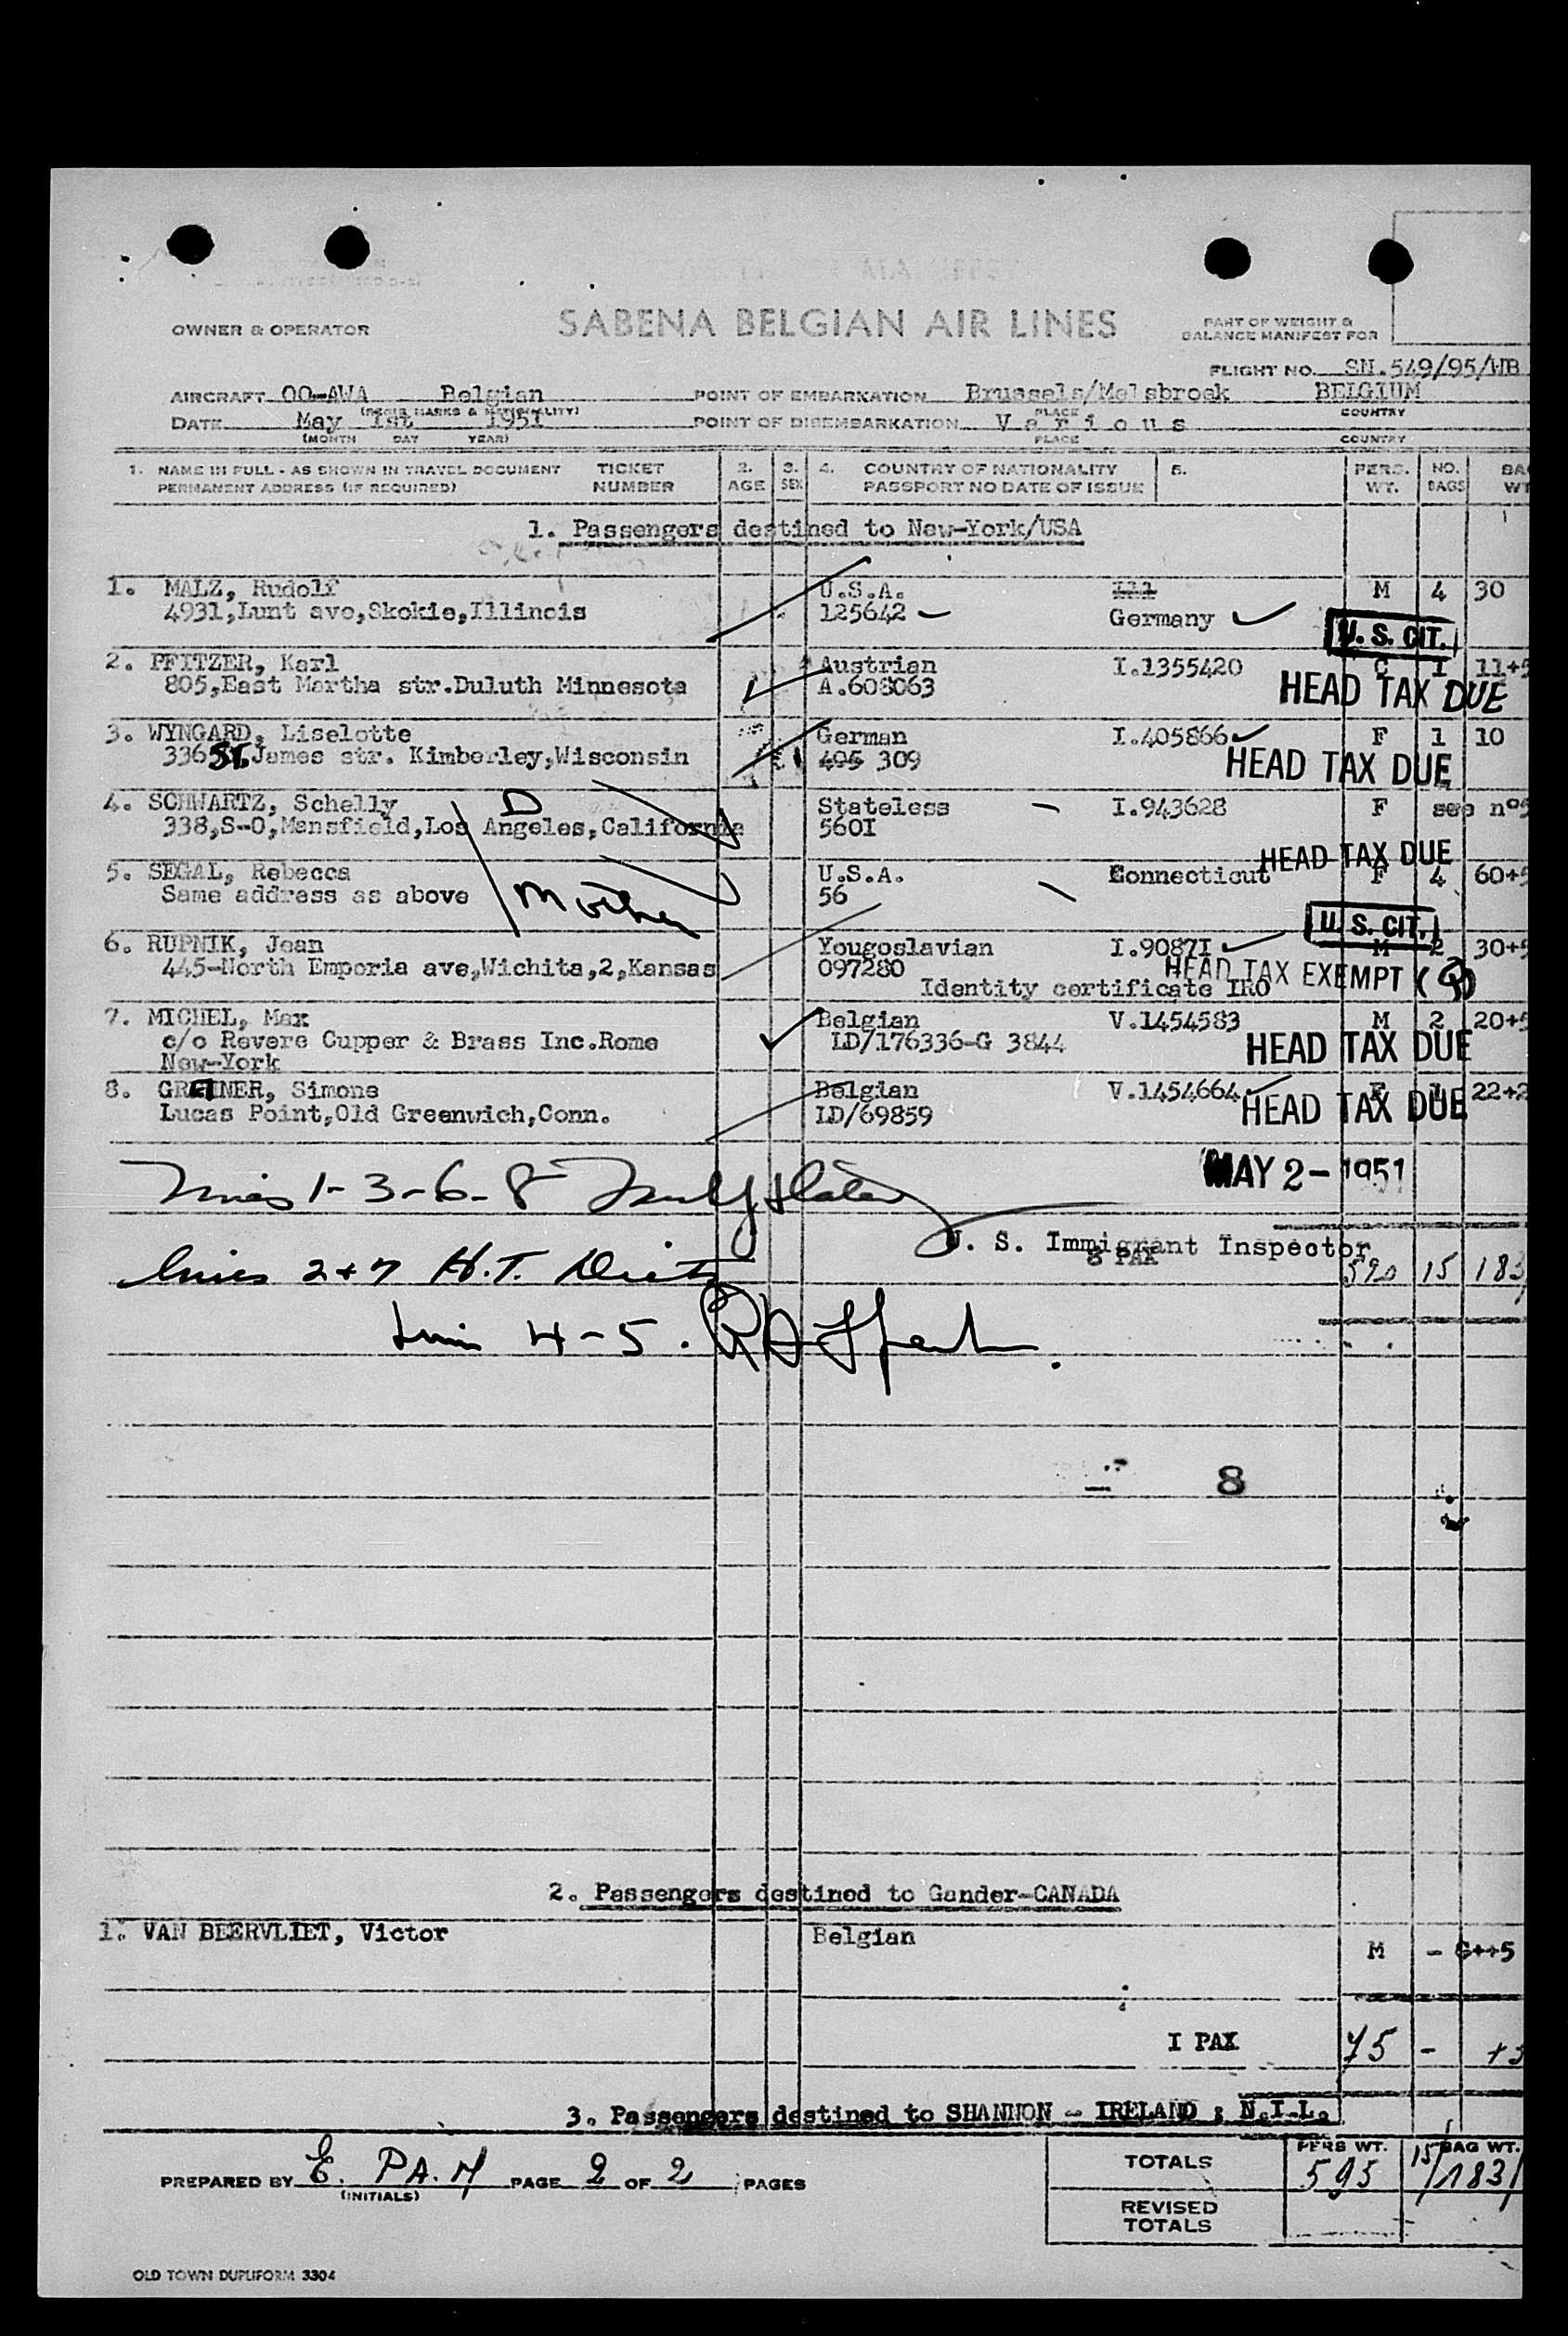 SABENA BELGIAN AIR LINES
OWNER & OPERATOR
PART OF WEIGHT &
BALANCE MANIFEST FOR
FLIGHT NO. SN.549/95/WB
AIRCRAFT OO-AWA Belgian POINT OF EMBARKATION Brussels/Melsbroek BELGIUM
(REGIS. MARKS & NATIONALITY) PLACE COUNTRY
DATE May 1st 1951 POINT OF DISEMBARKATION Various
(MONTH DAY YEAR) PLACE COUNTRY
1. NAME IN FULL - AS SHOWN IN TRAVEL DOCUMENT TICKET 2. 3. 4. COUNTRY OF NATIONALITY 5. PERS. NO.
PERMANENT ADDRESS (IF REQUIRED) NUMBER AGE SEX PASSPORT NO DATE OF ISSUE WT. BAGS WT
1. Passengers destined to New-York/USA
1. MALZ, Rudolf U.S.A. Ill M 4 30
4931,Lunt ave,Skokie,Illinois 125642 Germany
U.S. CIT.
2. PFITZER, Karl Austrian I.1355420 C 1 11+5
805,East Martha str.Duluth Minnesota A.608063 HEAD TAX DUE
3. WYNGARD, Liselotte German I.405866 F 1 10
336 ST. James str. Kimberley,Wisconsin 405 309 HEAD TAX DUE
4. SCHWARTZ, Schelly D Stateless I.943628 F see n°5
338,S-O,Mansfield,Los Angeles,California 560I
HEAD TAX DUE
5. SEGAL, Rebecca U.S.A. Connecticut F 4 60+5
Same address as above Mother 56
U.S. CIT.
6. RUPNIK, Jean Yougoslavian I.9087I M 2 30+5
445-North Emporia ave,Wichita,2,Kansas 097280 HEAD TAX EXEMPT
Identity certificate IRO
7. MICHEL, Max Belgian V.1454583 M 2 20+5
c/o Revere Cupper & Brass Inc.Rome LD/176336-G 3844 HEAD TAX DUE
New-York
8. GREINER, Simone Belgian V.1454664 F 1 22+2
Lucas Point,Old Greenwich,Conn. LD/69859 HEAD TAX DUE
MAY 2-1951
Lines 1-3-6-8
U. S. Immigrant Inspector
8 PAX
590 15 183
Lines 2+7 H.T. Dietz
Lines 4-5.
8
2. Passengers destined to Gander-CANADA
1. VAN BEERVLIET, Victor Belgian
M - 6++5
I PAX 75 -
3. Passengers destined to SHANNON - IRELAND : N.I.L.
PREPARED BY E. PA.M PAGE 2 OF 2 PAGES
(INITIALS)
TOTALS PERS WT. BAG WT.
595 15/183/
REVISED
TOTALS
OLD TOWN DUPLIFORM 3304